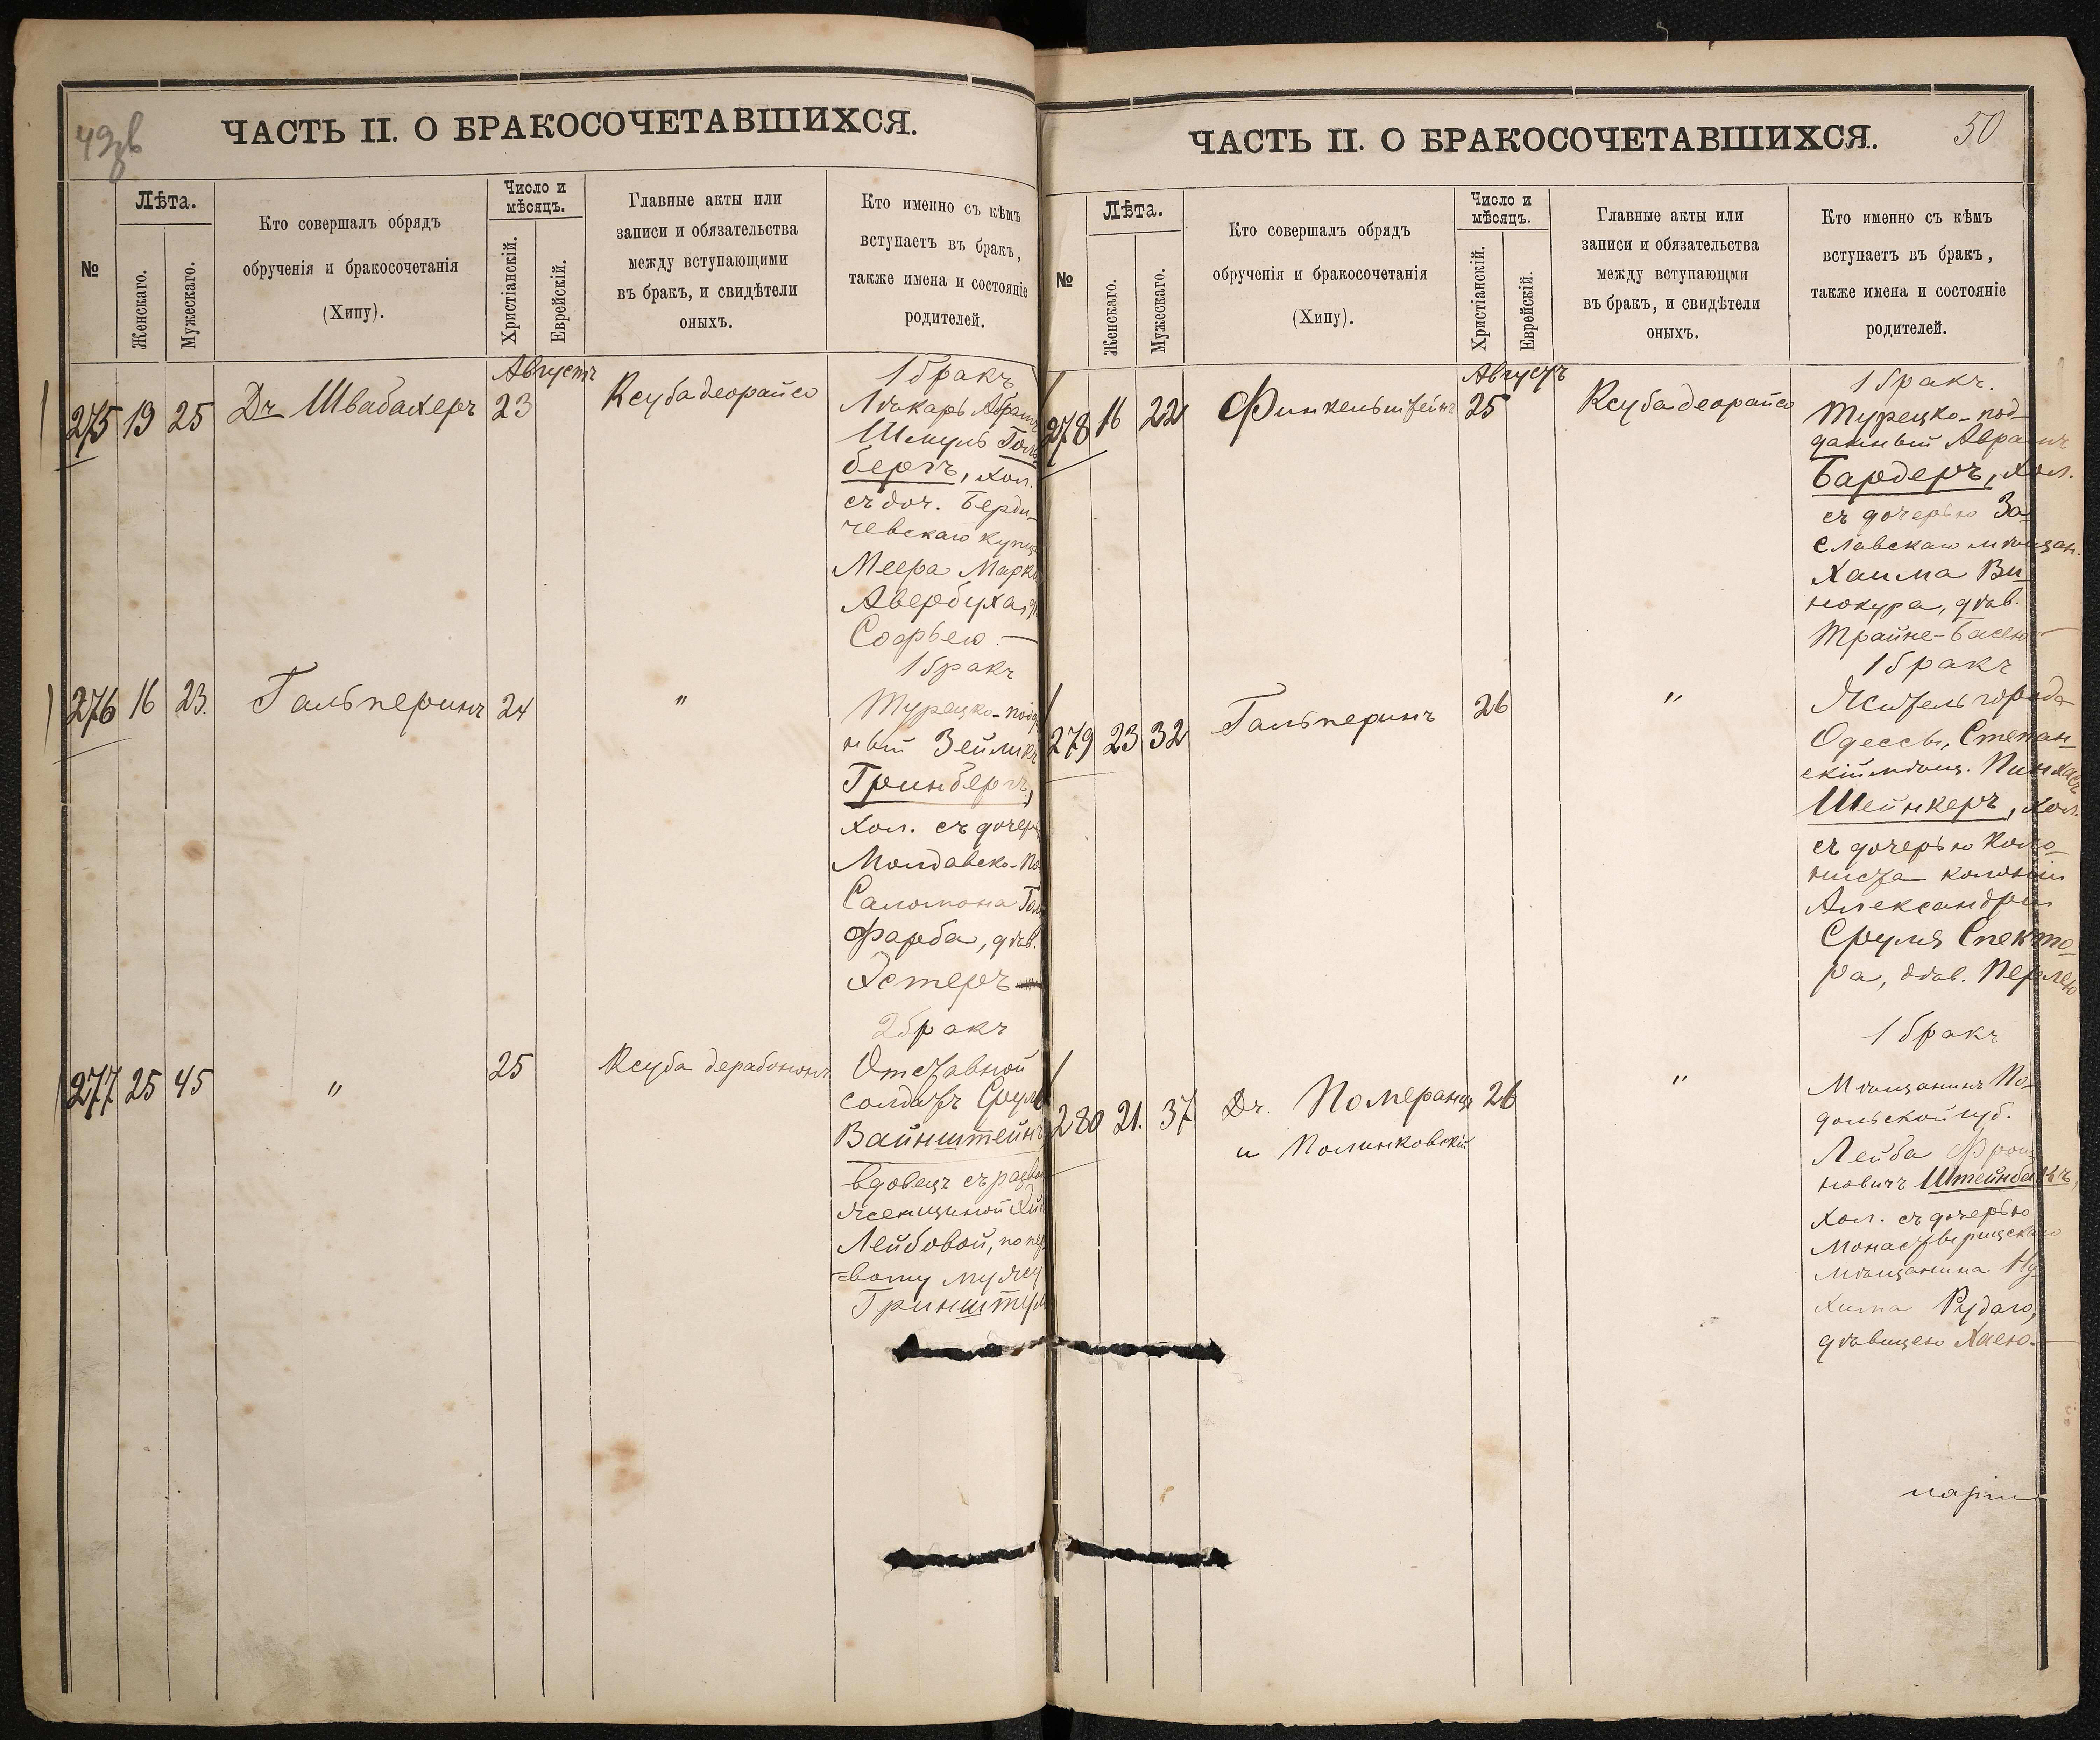 49зв
ЧАСТЬ II. О БРАКОСОЧЕТАВШИХСЯ.
№
Лѣта.
Женскаго.
Мужескаго.
Кто совершалъ обрядъ
обрученія и бракосочетанія
(Хипу).
Число и
мѣсяцъ.
Христіанскій.
Еврейскій.
Главные акты или
записи и обязательства
между вступающими
въ бракъ, и свидѣтели
оныхъ.
Кто именно съ кѣмъ
вступаетъ въ бракъ,
также имена и состояніе
родителей.
Августъ
275 19 25 Дръ Швабахеръ 23 Ксуба деорайсо
1 бракъ
Лѣкарь Абрамъ
Шмуль
бергъ, хол.
съ доч. Берди-
чевскаго купца
Меера Марка
Авербуха,
Софьею. —
276 16 23. Гальперинъ 24 "
1 бракъ
Турецко-подда
ный Зейликъ
Гринбергъ,
хол. съ дочер
Молдавско-По
Саломона Гол
фарба, дѣв.
Эстеръ —
277 25 45 " 25 Ксуба дерабононъ
2 бракъ
Отставной
солдатъ Сруль
Вайнштейнъ
вдовецъ съ развед
женщиной
Лейбовой, по пер
-вому мужу
Гринштейн
50
ЧАСТЬ II. О БРАКОСОЧЕТАВШИХСЯ.
№
Лѣта.
Женскаго.
Мужескаго.
Кто совершалъ обрядъ
обрученія и бракосочетанія
(Хипу).
Число и
мѣсяцъ.
Христіанскій.
Еврейскій.
Главные акты или
записи и обязательства
между вступающми
въ бракъ, и свидѣтели
оныхъ.
Кто именно съ кѣмъ
вступаетъ въ бракъ,
также имена и состояніе
родителей.
Августъ
278 16 22 Финкельштейнъ 25 Ксуба деорайсо
1 бракъ.
Турецко-под-
данный Аврамъ
Бардеръ, хол.
съ дочерью За-
славскаго мѣщан.
Хаима Ви-
нокура, дѣв.
Трайне-Басею —
279 23 32 Гальперинъ 26 "
1 бракъ
Житель города
Одессы, Степан-
скій мѣщ. Пинхасъ
Шейнкеръ, хол.
съ дочерью коло-
ниста колоніи
Александріи
Сруля Спекто-
ра, дѣв. Перлею
280 21. 37 Дръ. Померанцъ 26 "
и Полинковскій
1 бракъ
Мѣщанинъ По-
дольской губ.
Лейба
новичъ Штейнбанкъ,
хол. съ дочерью
Монастырищскаго
мѣщанина Ну-
хима Рудаго,
дѣвицею Хаею. —